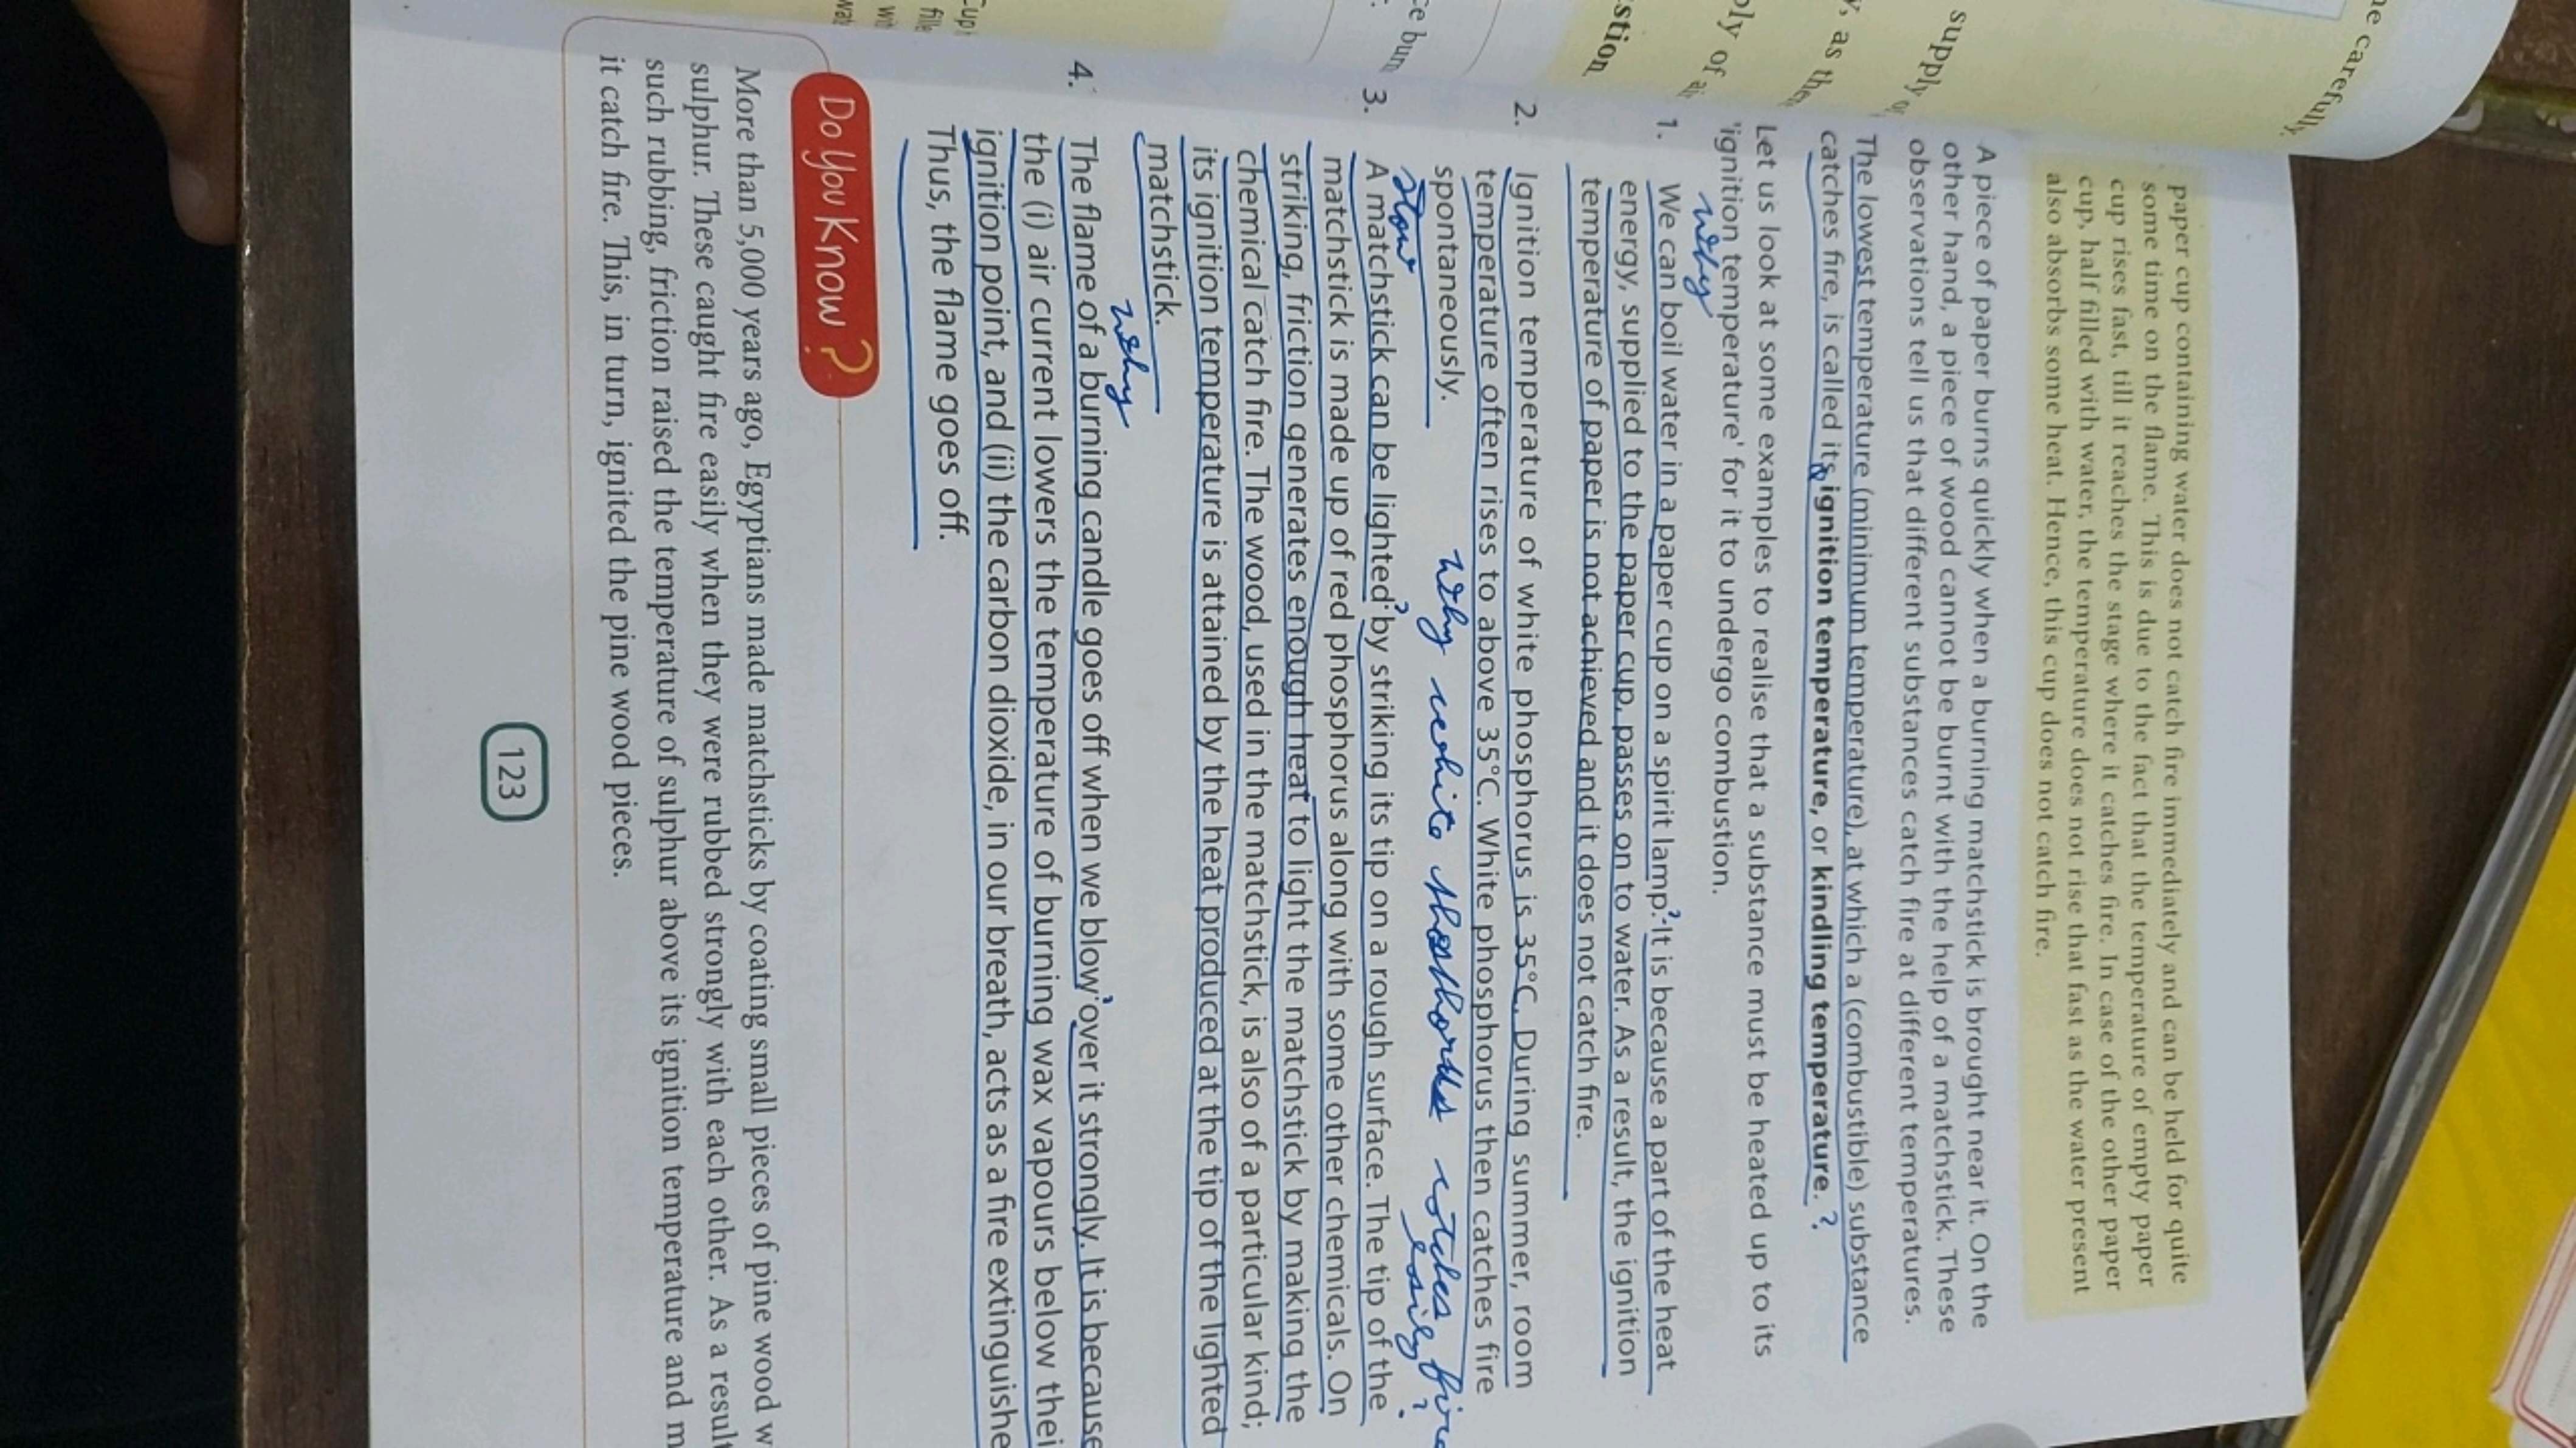 ne carefully
supply
y, as the
ply of
stion
ce burn
Cup
paper cup containing water does not catch fire immediately and can be held for quite
some time on the flame. This is due to the fact that the temperature of empty paper
cup rises fast, till it reaches the stage where it catches fire. In case of the other paper
cup, half filled with water, the temperature does not rise that fast as the water present
also absorbs some heat. Hence, this cup does not catch fire.
A piece of paper burns quickly when a burning matchstick is brought near it. On the
other hand, a piece of wood cannot be burnt with the help of a matchstick. These
observations tell us that different substances catch fire at different temperatures.
The lowest temperature (minimum temperature), at which a (combustible) substance
catches fire, is called its ignition temperature, or kindling temperature. ?
Let us look at some examples to realise that a substance must be heated up to its
'ignition temperature' for it to undergo combustion.
why
1. We can boil water in a paper cup on a spirit lamp. ? It is because a part of the heat
energy, supplied to the paper cup, passes on to water. As a result, the ignition
temperature of paper is not achieved and it does not catch fire.
2. Ignition temperature of white phosphorus is 35°C. During summer, room
temperature often rises to above 35°C. White phosphorus then catches fire
spontaneously. why white
3. A matchstick can be lighted ? by striking its tip on a rough surface. The tip of the
matchstick is made up of red phosphorus along with some other chemicals. On
striking, friction generates enough heat to light the matchstick by making the
chemical catch fire. The wood, used in the matchstick, is also of a particular kind;
its ignition temperature is attained by the heat produced at the tip of the lighted
matchstick.
why
4. The flame of a burning candle goes off when we blow ? over it strongly. It is because
the (i) air current lowers the temperature of burning wax vapours below thei
ignition point, and (ii) the carbon dioxide, in our breath, acts as a fire extinguishe
Thus, the flame goes off.
Do You Know ?
More than 5,000 years ago, Egyptians made matchsticks by coating small pieces of pine wood w
sulphur. These caught fire easily when they were rubbed strongly with each other. As a result
such rubbing, friction raised the temperature of sulphur above its ignition temperature and m
it catch fire. This, in turn, ignited the pine wood pieces.
123